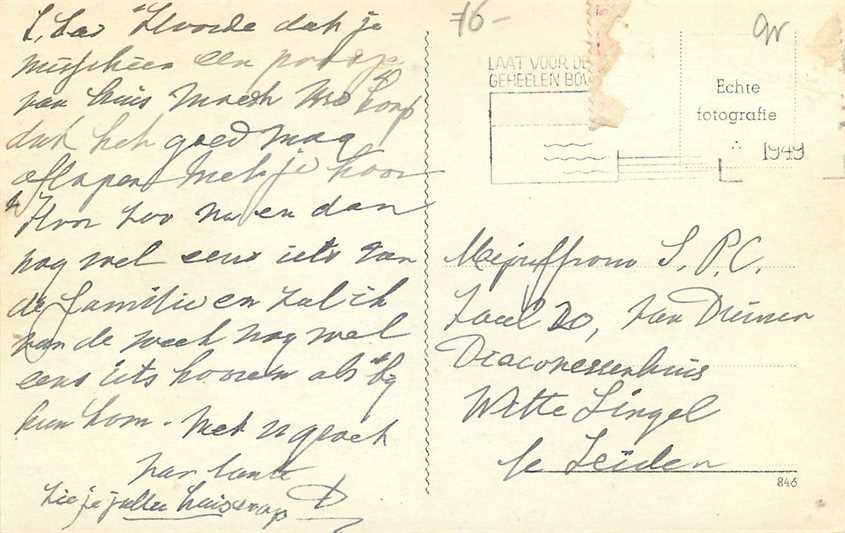 Hoorde dat je
misschien een poosje
van huis moest. We hoop
dat het goed mag
aflopen met je hoor
Hoor zoo nu en dan
nog wel eens iets van
de familie en zal ik
van de week nog wel
eens iets hooren als by
hun kom. Met n groet
van tante
Zie je jullie huis erop
76-
gr
LAAT VOOR DE
GEHEELEN
Echte
fotografie
1949
Mejuffrouw S. P. C.
Zaal 20, van Diemen
Diaconessenhuis
Witte Singel
te Leiden
846